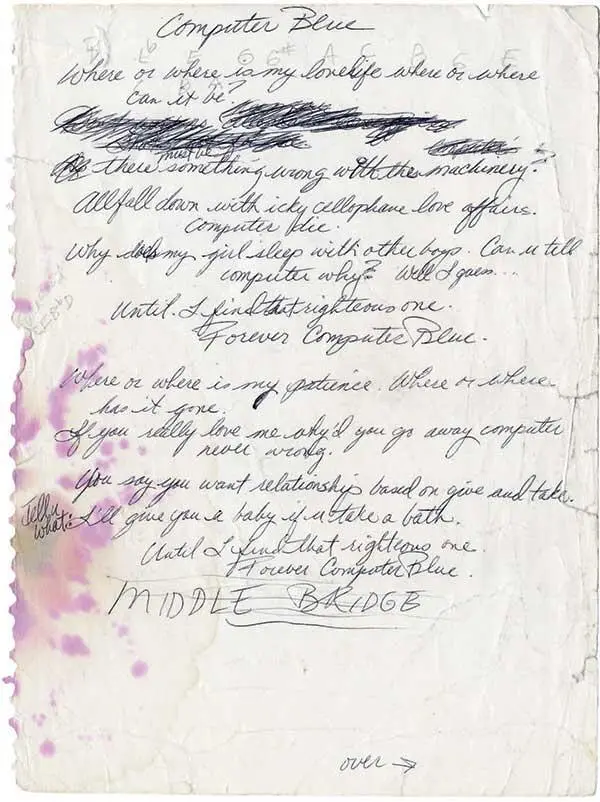 Computer Blue
Where or where is my lovelife where or where
can it be?
Computer
must be
there something wrong with the machinery?
All fall down with icky cellophane love affairs.
Computer die.
Why does my girl sleep with other boys. Can u tell
computer why? Well I guess...
Until I find that righteous one.
Forever Computer Blue.
Where or where is my patience. Where or where
has it gone.
If you really love me why'd you go away computer
never wrong.
You say you want relationship based on give and take.
Tell u
what:
I'll give you a baby if u take a bath.
Until I find that righteous one.
Forever Computer Blue.
MIDDLE BRIDGE
over →